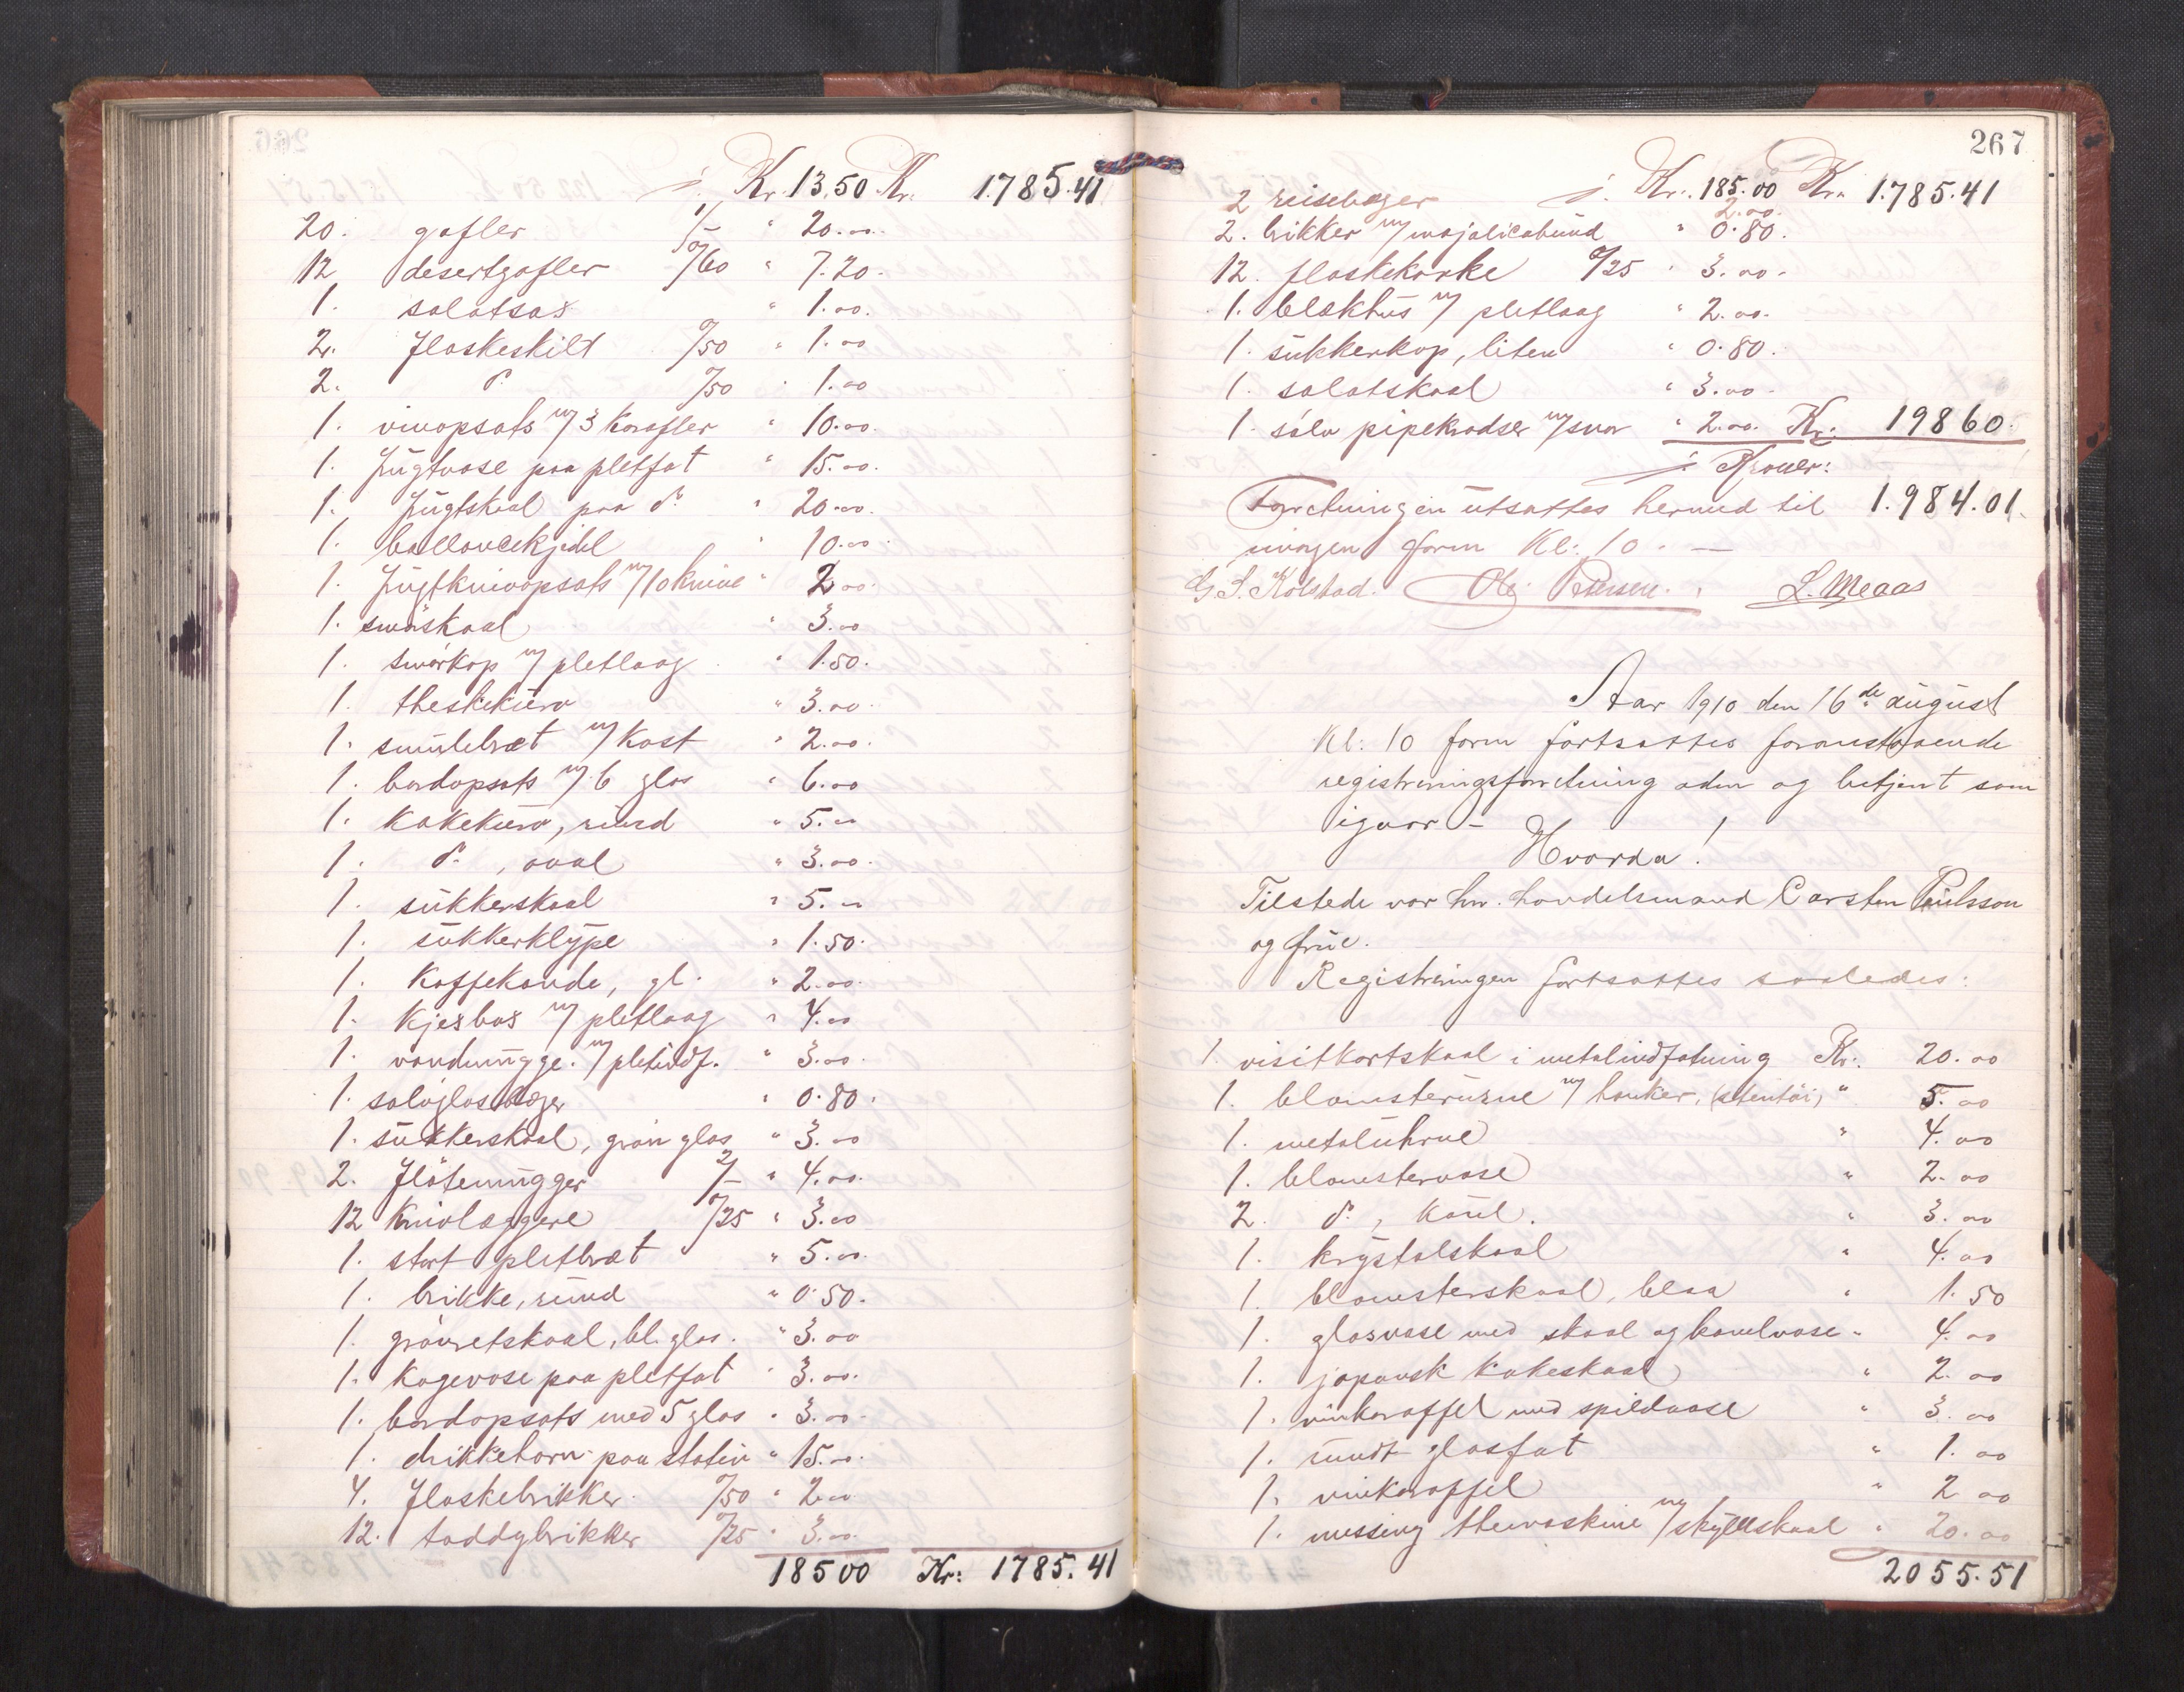 Kr. 13,50 Kr. 1.785.41
20. gafler 1/- " 20.00.
12 desertgafler 0/60 " 7.20.
1. salatsax " 1.00.
2. flaskeskilt 0/50 " 1.00
2. do 0/50 " 1.00
1. vinopsats m/ 3 karafler " 10.00.
1. frugtvase paa pletfat " 15.00.
1. frugtskaal paa do " 20.00.
1. ballancekjedel " 10.00
1. frugtknivopsats m/ 10 knive " 2.00.
1. smörskaal " 3.00
1. smörkop m/ pletlaag " 1.50.
1. theskekurv " 3.00.
1. smulebræt m/ kost " 2.00.
1. bordopsats m/ 6 glas " 6.00
1. kakekurv, rund " 5.00
1. do , oval " 3.00.
1. sukkerskaal " 5.00
1. sukkerklype " 1.50.
1. kaffekande, gl. " 2.00.
1. kjexbox m/ pletlaag " 4.00
1. vandmugge m/ pletindf. " 3.00.
1. sølvglasbæger " 0.80.
1. sukkerskaal, grön glas " 3.00
2. flötemugger 2/- " 4.00.
12 knivlæggere 0/25 " 3.00
1. stort pletbræt " 5.00.
1. brikke, rund " 0.50.
1. grönretskaal, bl. glas. " 3.00
1. kagevase paa pletfat " 3.00.
1. bordopsats med 5 glas " 3.00
1. drikkehorn paa stativ " 15.00.
4. flaskebrikker 0/50 " 2.00
12. toddybrikker 0/25 " 3.00.
18500 Kr: 1785.41
267
Kr. 185.00 Kr. 1.785.41
2 reisebæger 2.00.
2. brikker m/ majolicabund " 0.80.
12. flaskekorke 0/25 " 3.00.
1. blækhus m/ pletlaag " 2.00.
1. sukkerkop, liten " 0.80.
1. salatskaal " 3.00.
1. sölv pipekradser m/ snor " 2.00. Kr: 198 60.
Kroner:
Forretningen utsattes hermed til 1.984.01.
imorgen form Kl: 10. —
G. S. Kolstad. Ole Petersen. L. Meaas
Aar 1910 den 16de august
Kl: 10 form fortsattes foranstaaende
registreringsforretning aden og betjent som
igaar – Hvorda!
Tilstede var hr. handelsmand Carsten Paulsson
og frue.
Registreringen fortsattes saaledes:
1. visitkortskaal i metalindfatning Kr: 20.00
1. blomsterurne m/ hanker, (stentöi) " 5.00
1. metaluhrne " 4.00
1. blomstervase " 2.00
2. do , " 3.00
1. krystalskaal " 4.00
1. blomsterskaal, blaa " 1.50
1. glasvase med skaal og " 4.00
1. japansk kakeskaal " 2.00
1. vinkaraffel med spildvase " 3.00
1. rundt glasfat " 1.00
1. vinkaraffel " 2 00
1. messing themaskine m/ skylleskaal " 20.00
2055.51